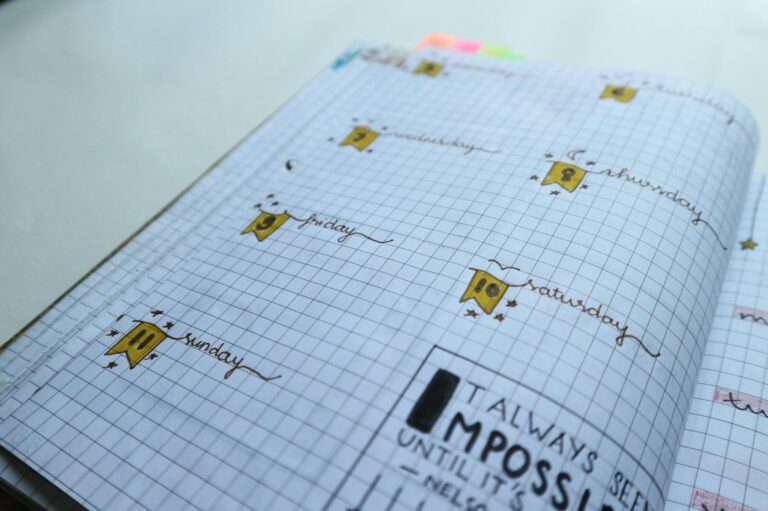 5
6 tuesday
7 wednesday
8 thursday
9 friday
10 saturday
11 sunday
IT ALWAYS SEE
IMPOSSI
UNTIL IT'S
—NELSO